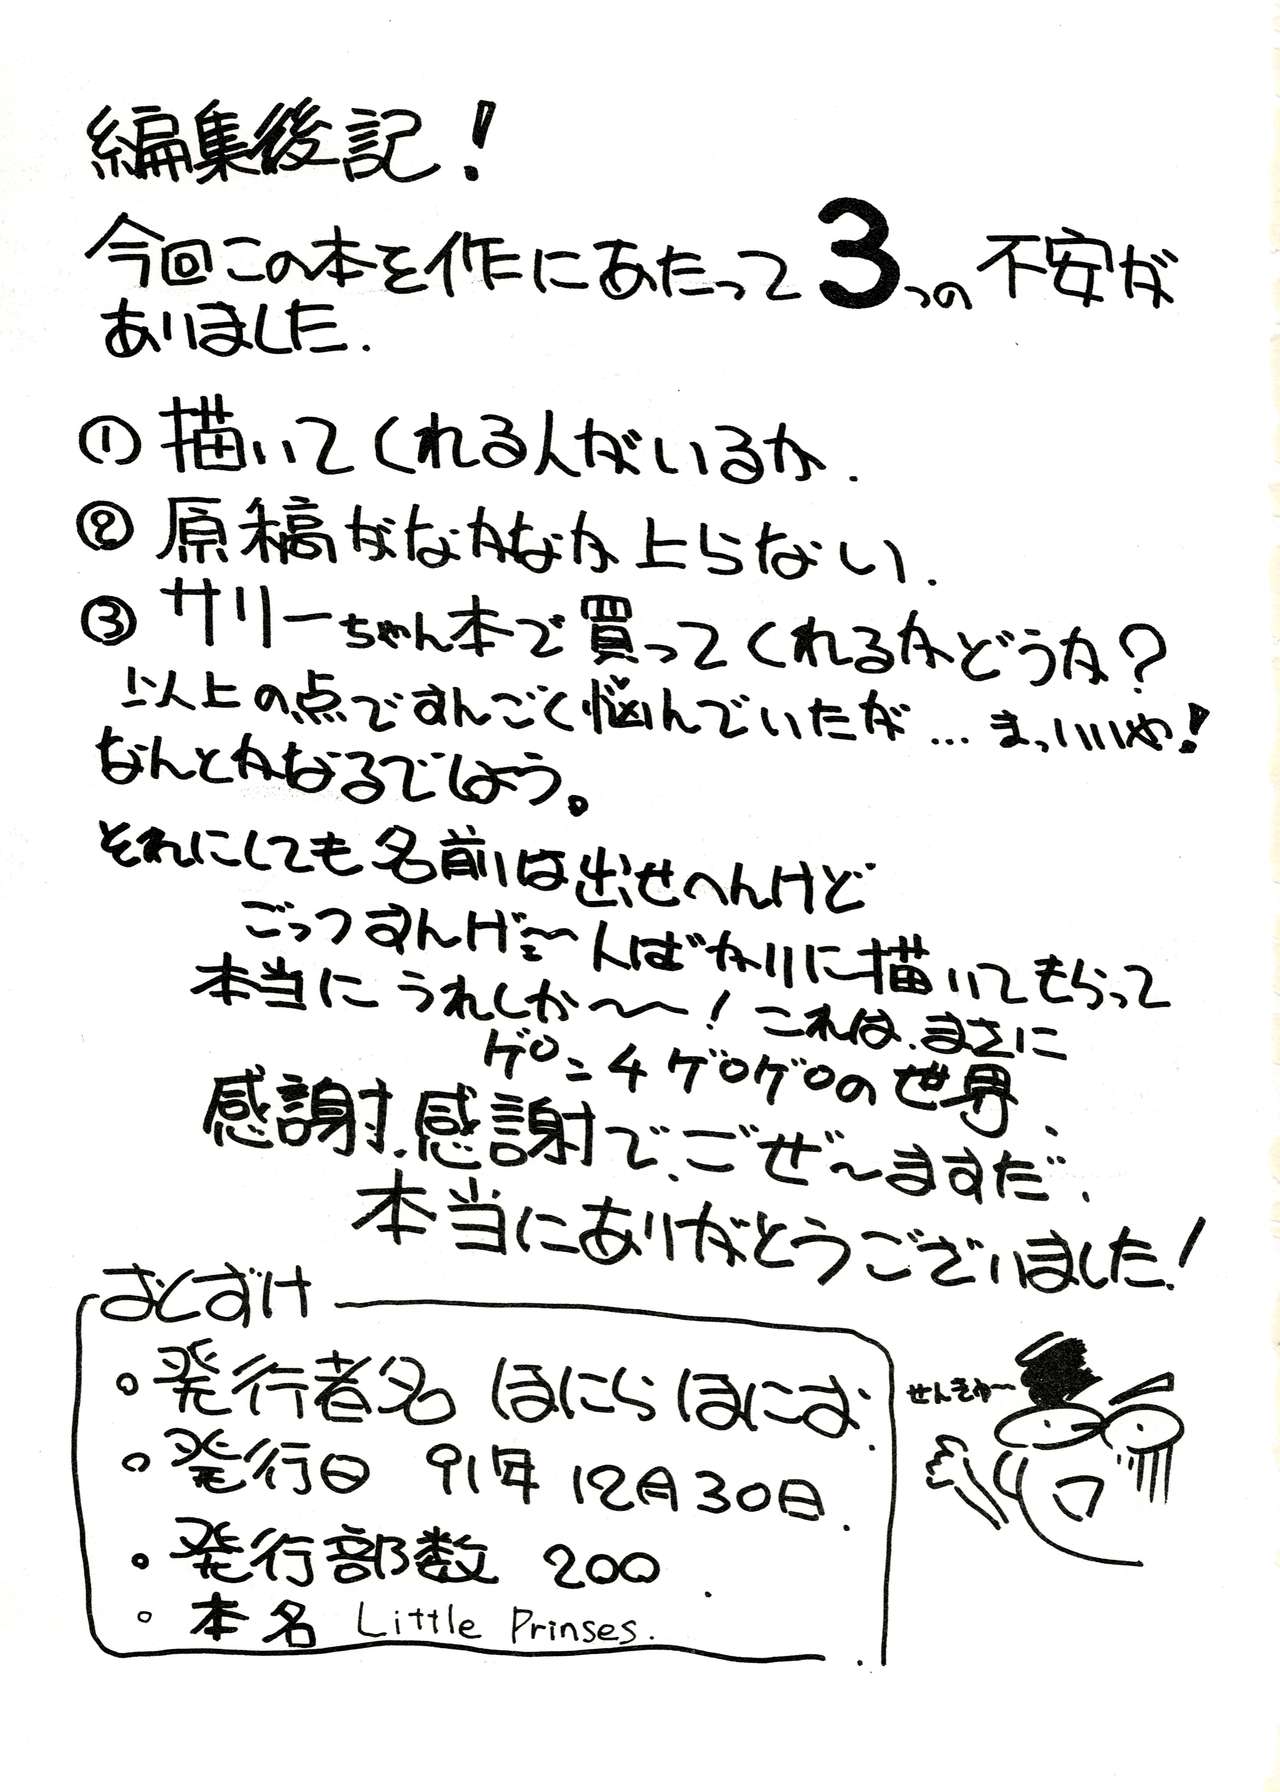 編集後記!
今回この本を作にあたって3つの不安が
ありました.
① 描いてくれる人がいるか.
② 原稿がなかなか上らない.
③ サリーちゃん本で買ってくれるかどうか?
以上の点ですんごく悩んでいたが…まっいいや!
なんとかなるでしょう。
それにしても名前は出せへんけど
ごっつすんげ〜人ばかりに描いてもらって
本当にうれしか〜〜!これは.まさに
ゲロ=4ゲロゲロの世界.
感謝.感謝で.ござ〜ますだ.
本当にありがとうございました!
おくずけ
・発行者名 ほにらほにお.
・発行日 91年12月30日.
・発行部数 200.
・本名 Little Prinses.
せんきゅ〜